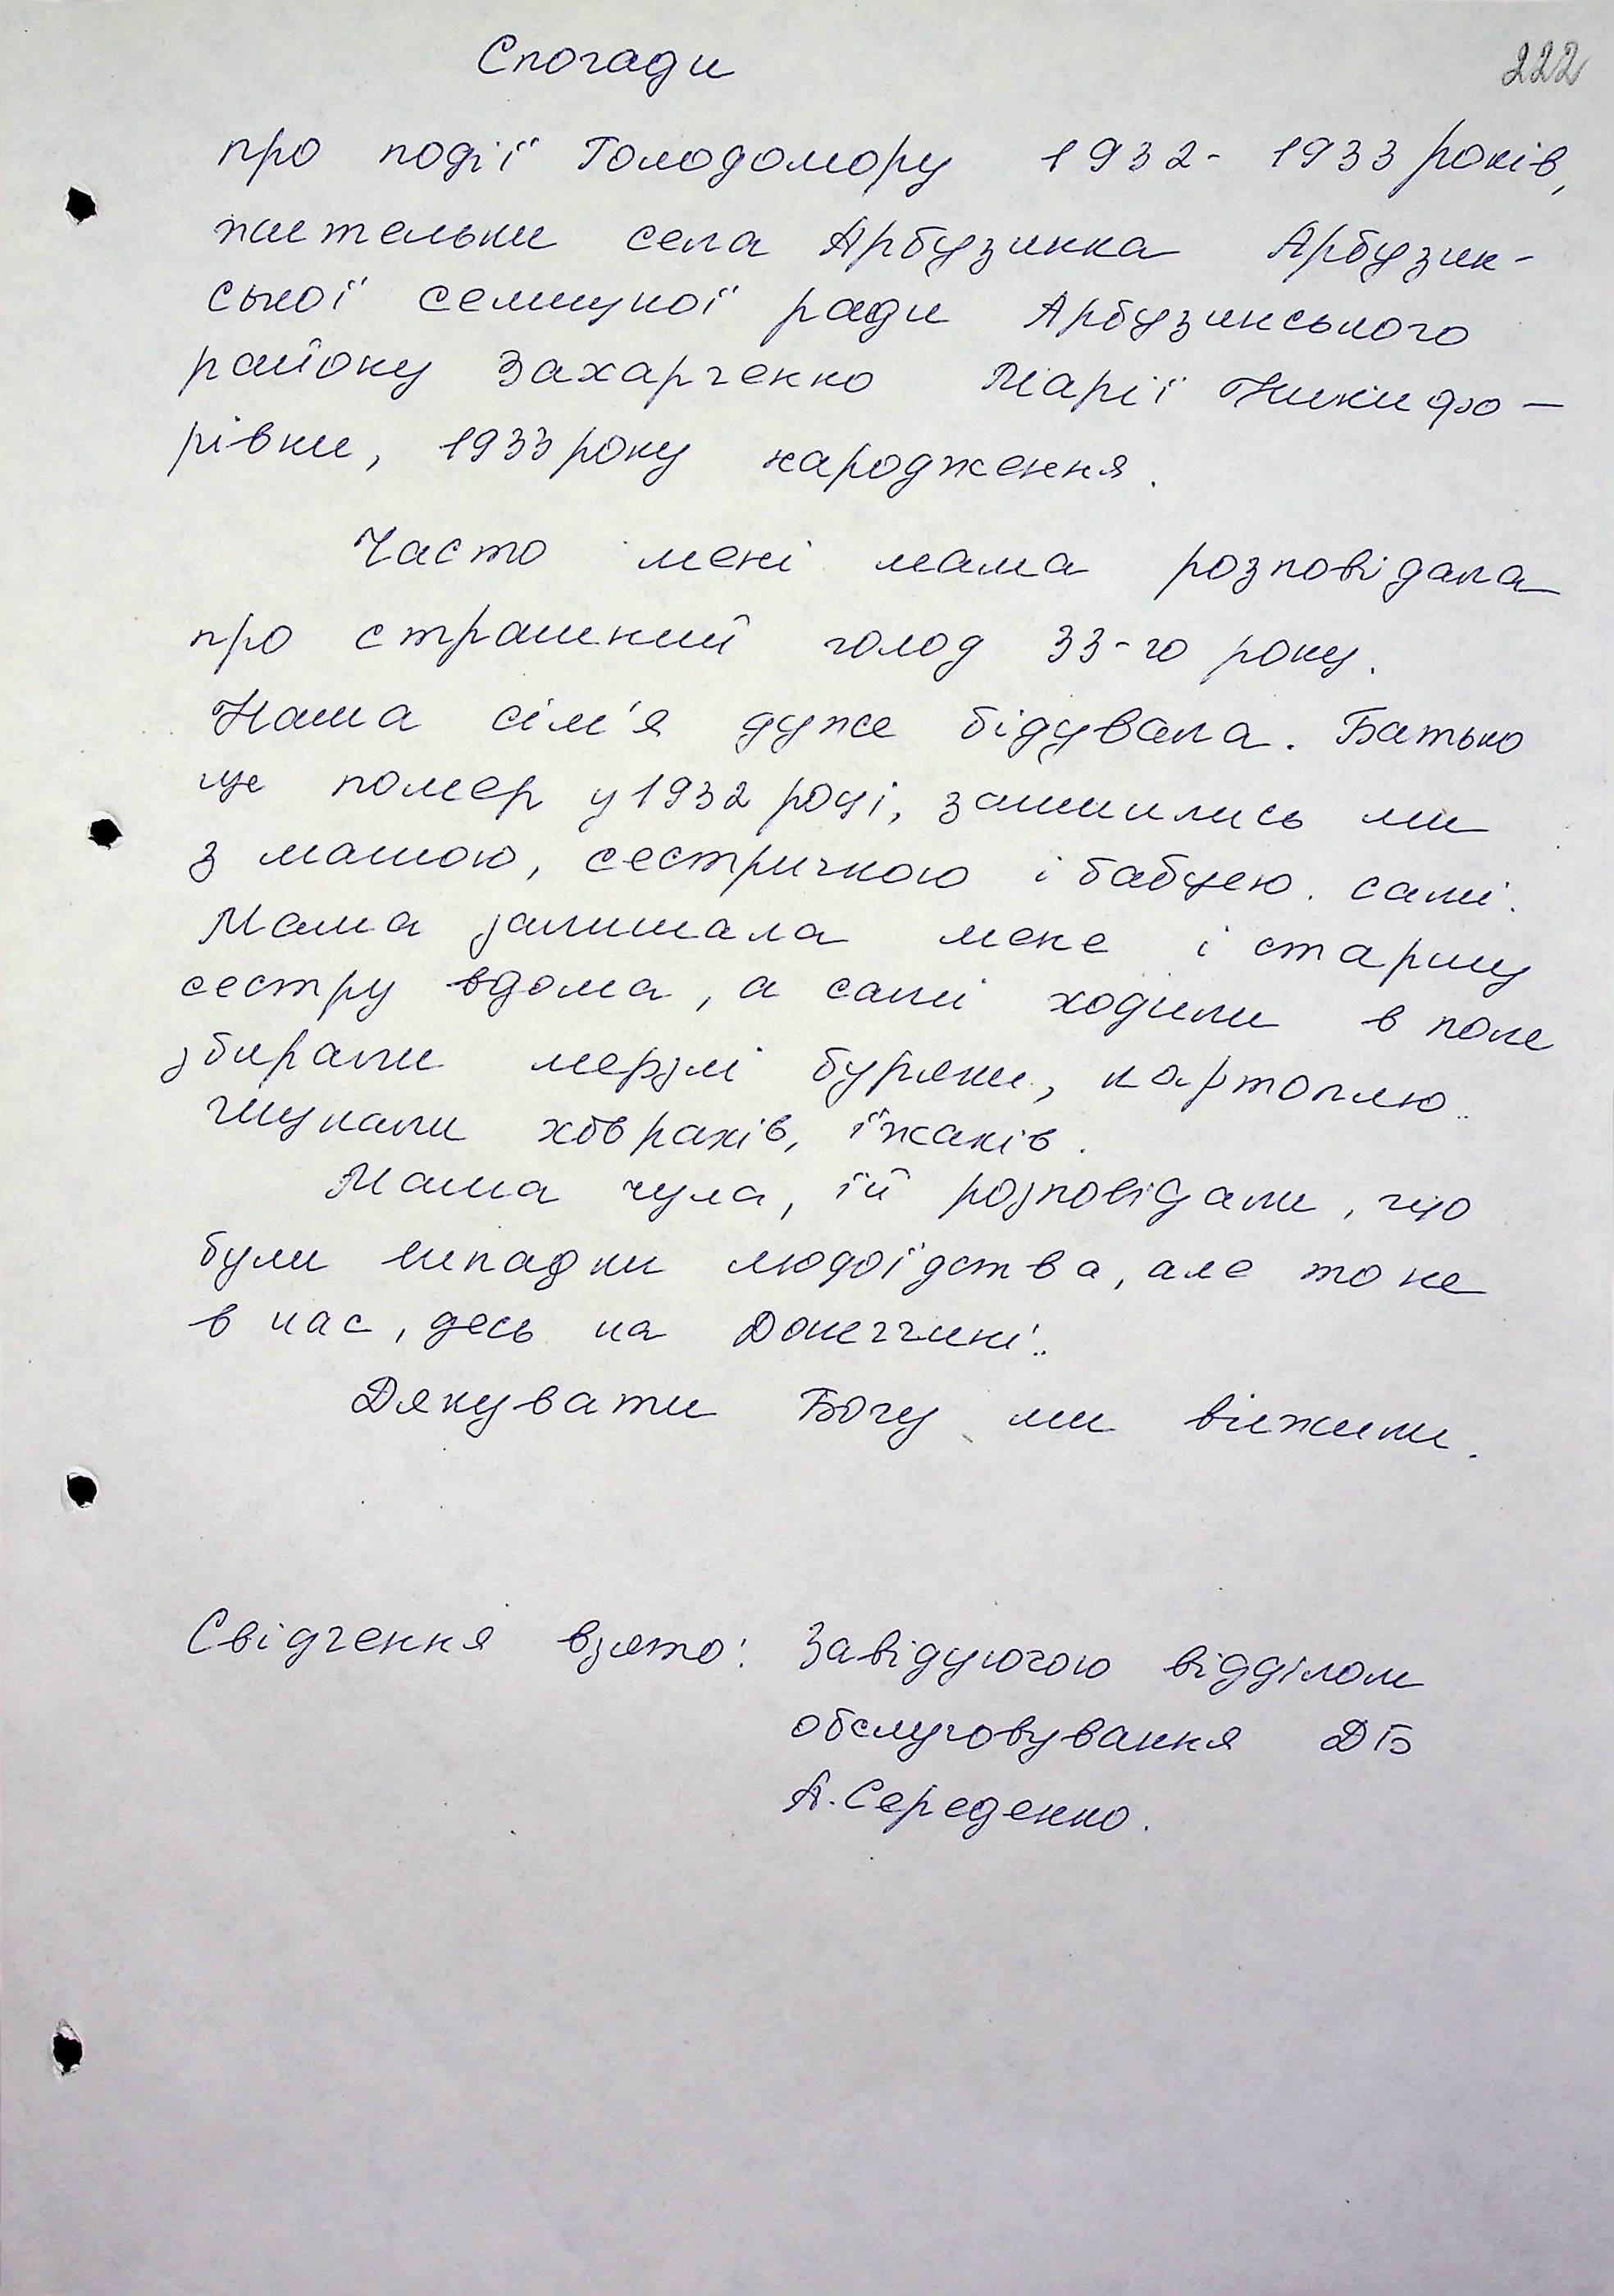 222
Спогади
про події Голодомору 1932-1933 років,
жительки села Арбузинка Арбузин-
ської селищної ради Арбузинського
району Захарченко Марії Никифо-
рівни, 1933 року народження.
Часто мені мама розповідала
про страшний голод 33-го року.
Наша сім'я дуже бідувала. Батько
ще помер у 1932 році, зашились ми
з мамою, сестричкою і бабцею. самі.
Мама залишала мене і старшу
сестру вдома, а самі ходили в поле
збирали мерзлі буряки, картоплю..
шукали ховрахів, їжаків.
Мама чула, їй розповідали, що
були випадки людоїдства, але то не
в нас, десь на Донеччині..
Дякувати Богу ми вижили.
Свідчення взято: Завідуючою відділом
обслуговування ДБ
А. Середенко.